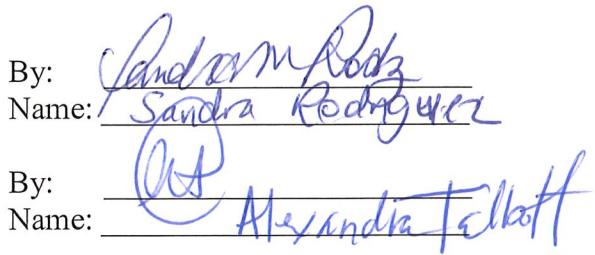 By: Sandra M Rodz
Name: Sandra Rodriguez
By:
Name: Alexandra Talbott